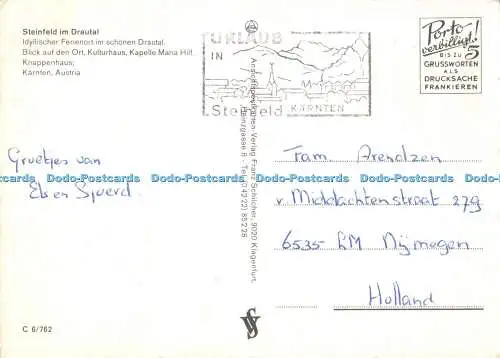 Steinfeld im Drautal
Idyllischer Ferienort im schönen Drautal.
Blick auf den Ort, Kulturhaus, Kapelle Maria Hilf,
Knappenhaus;
Kärnten, Austria
URLAUB
IN
Steinfeld KÄRNTEN
Porto
verbilligt!
BIS ZU 5
GRUSSWORTEN
ALS
DRUCKSACHE
FRANKIEREN
Ansichtskarten-Verlag Franz Schilcher, 9020 Klagenfurt,
Tel. (0 42 22) 85 2 26
Groetjes van
Els en Sjoerd.
Fam. Arendzen
v. Middachtenstraat 279
6535 LM Nijmegen
Holland
Dodo-Postcards Dodo-Postcards Dodo-Postcards Dodo-Postcards
C 6/762